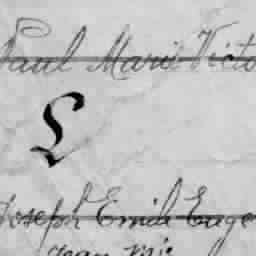 Paul Marie Victo
L
Joseph Emile Euge